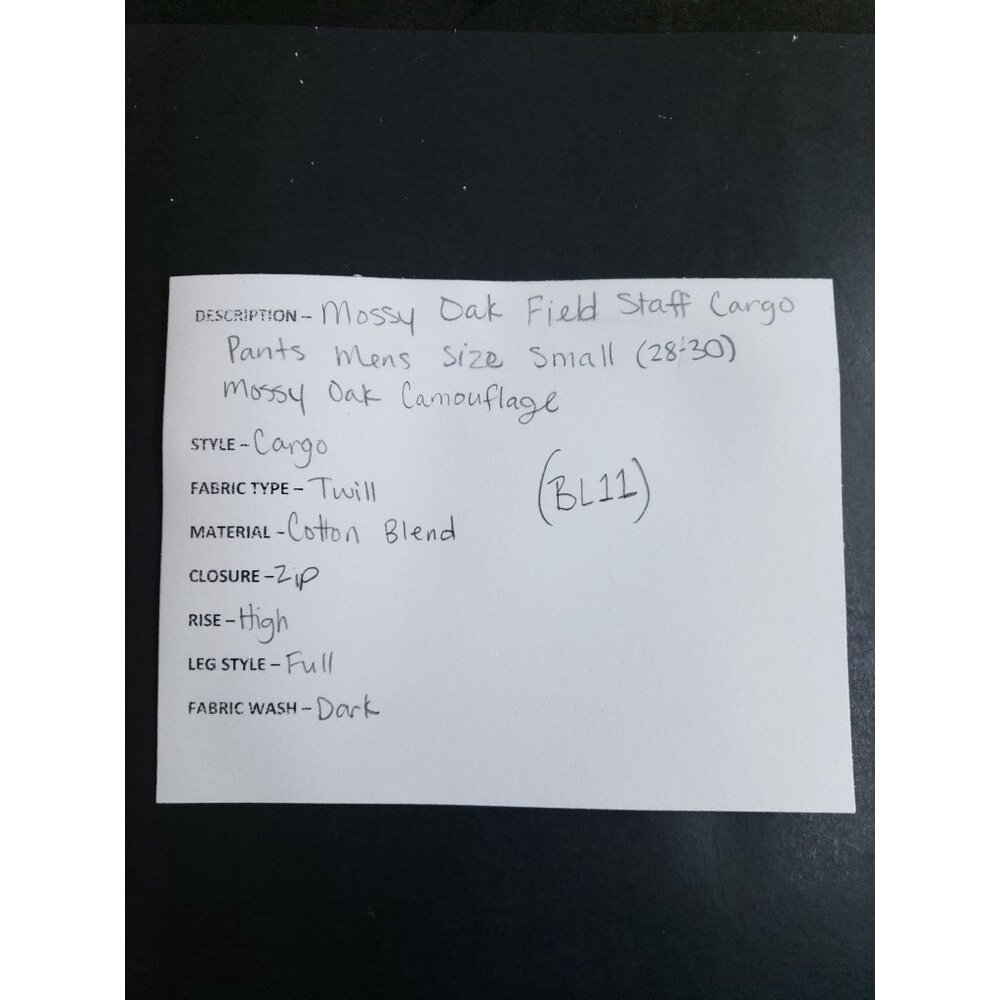 DESCRIPTION - Mossy Oak Field Staff Cargo
Pants Mens Size Small (28-30)
Mossy Oak Camouflage
STYLE - Cargo
FABRIC TYPE - Twill
(BL11)
MATERIAL - Cotton Blend
CLOSURE - Zip
RISE - High
LEG STYLE - Full
FABRIC WASH - Dark